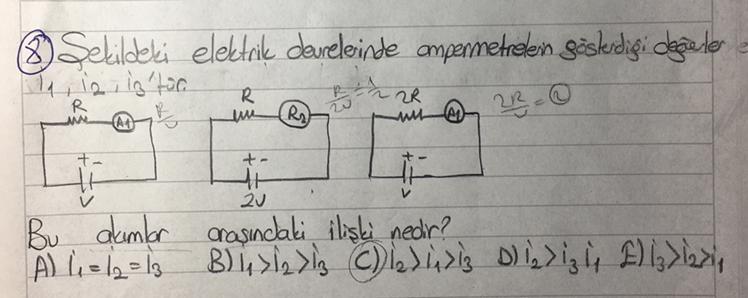 8) Şekildeki elektrik devrelerinde ampermetrelerin gösterdiği değerler
i1, i2, i3 'tür.
R A1 R/V R R2 R/2V = 1/2 2R A1 2R/V = 2
+ - + - + -
V 2V V
Bu akımlar arasındaki ilişki nedir?
A) i1 = i2 = i3 B) i1 > i2 > i3 C) i2 > i1 > i3 D) i2 > i3 i1 E) i3 > i2 > i1